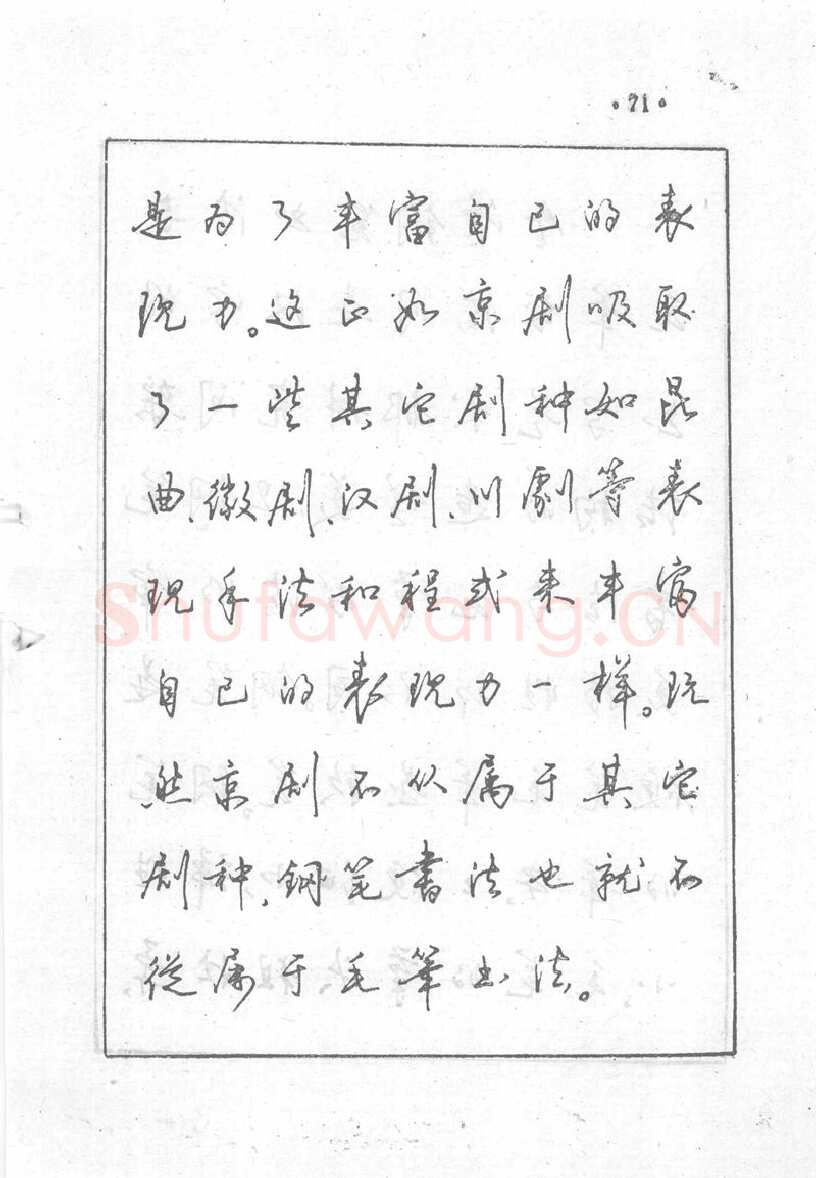 ·71·
是为了丰富自己的表
现力。这正如京剧吸取
了一些其它剧种如昆
曲、徽剧、汉剧、川劇等表
现手法和程式来丰富
Shufawang.CN
自己的表现力一样。既
然京剧不从属于其它
剧种,钢笔書法也就不
從属于毛筆书法。